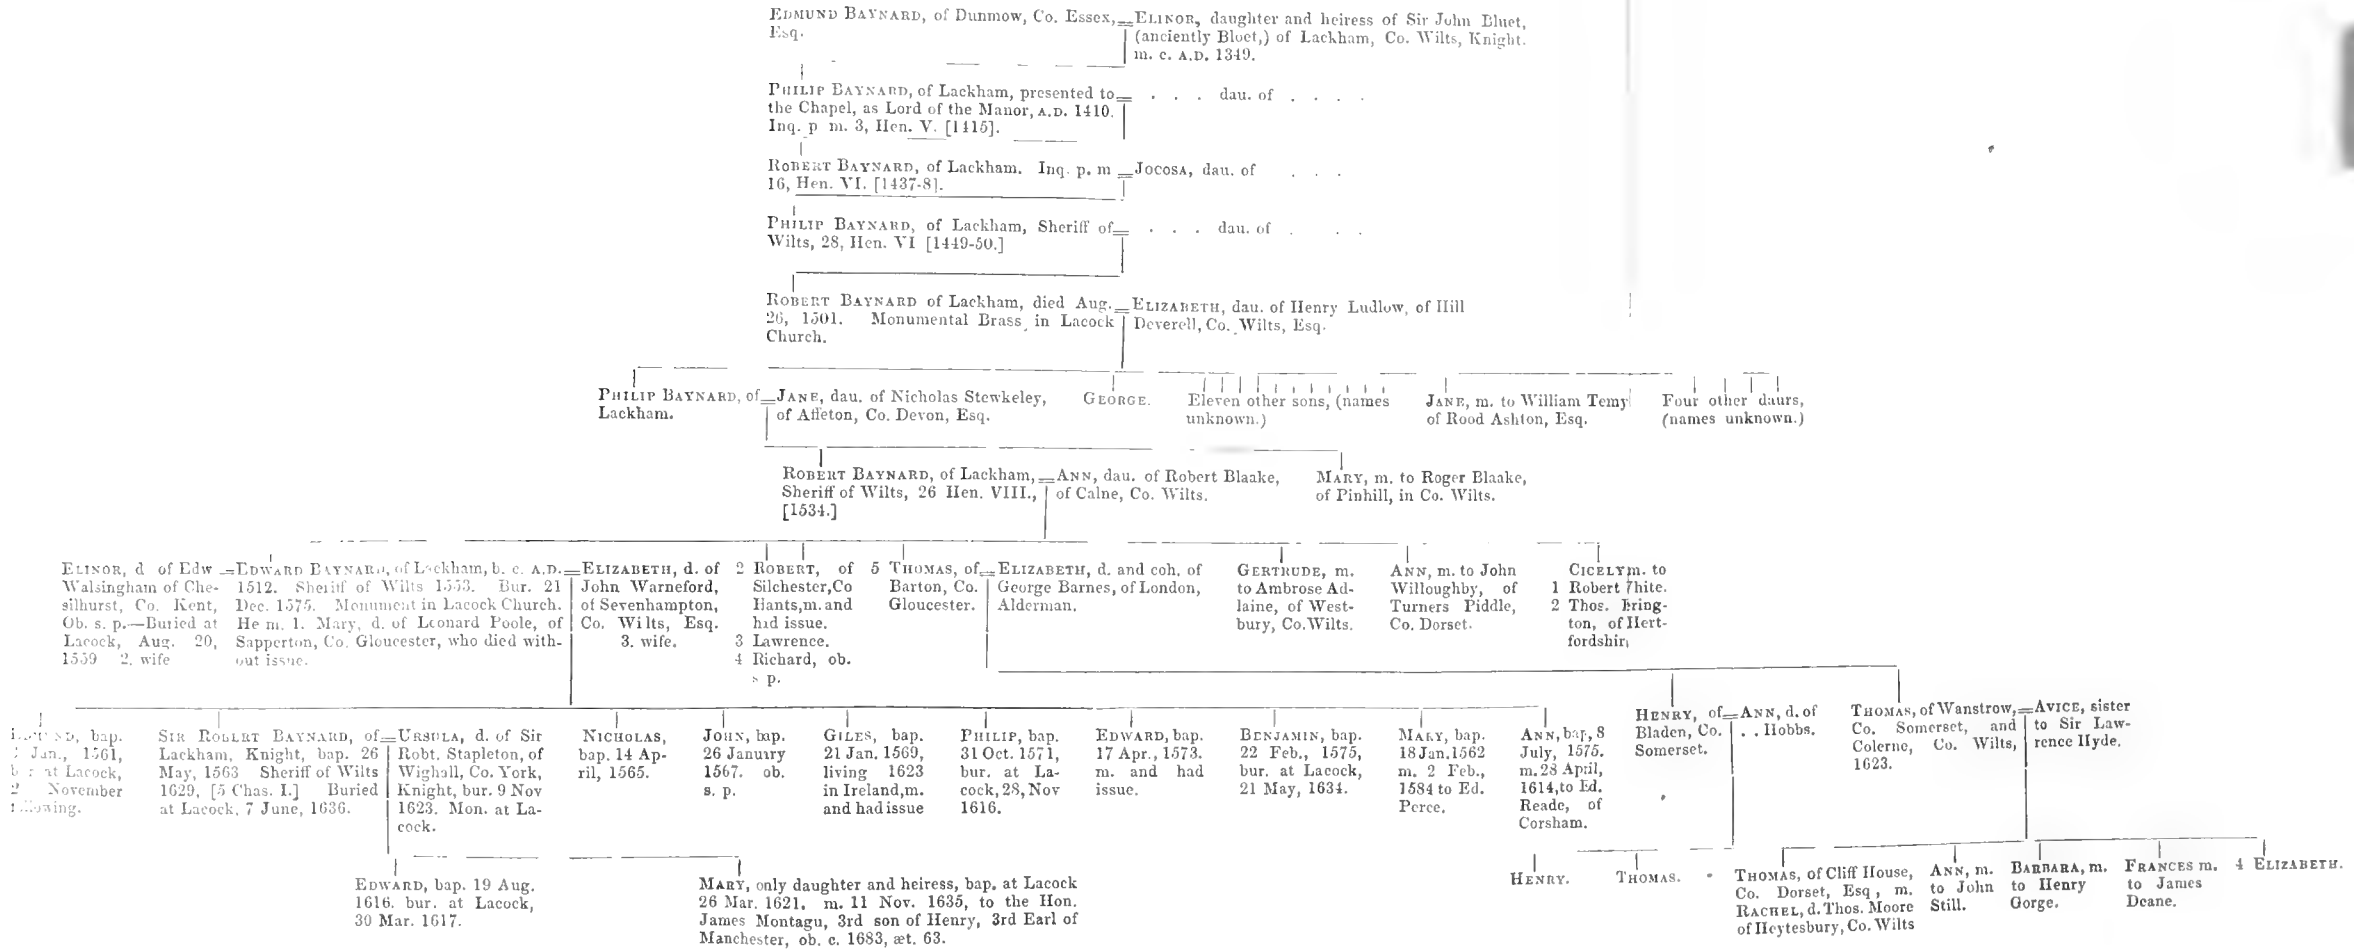 EDMUND BAYNARD, of Dunmow, Co. Essex,
Esq.
ELINOR, daughter and heiress of Sir John Bluet,
(anciently Bloet,) of Lackham, Co. Wilts, Knight.
m. c. A.D. 1349.
PHILIP BAYNARD, of Lackham, presented to
the Chapel, as Lord of the Manor, A.D. 1410.
Inq. p m. 3, Hen. V. [1415].
. . . dau. of . . . .
ROBERT BAYNARD, of Lackham. Inq. p. m
16, Hen. VI. [1437-8].
JOCOSA, dau. of . . .
PHILIP BAYNARD, of Lackham, Sheriff of
Wilts, 28, Hen. VI [1449-50.]
. . . dau. of . . .
ROBERT BAYNARD of Lackham, died Aug.
26, 1501. Monumental Brass in Lacock
Church.
ELIZABETH, dau. of Henry Ludlow, of Hill
Deverell, Co. Wilts, Esq.
PHILIP BAYNARD, of
Lackham.
JANE, dau. of Nicholas Stewkeley,
of Affeton, Co. Devon, Esq.
GEORGE.
Eleven other sons, (names
unknown.)
JANE, m. to William Temy
of Rood Ashton, Esq.
Four other daurs,
(names unknown.)
ROBERT BAYNARD, of Lackham,
Sheriff of Wilts, 26 Hen. VIII.,
[1534.]
ANN, dau. of Robert Blaake,
of Calne, Co. Wilts.
MARY, m. to Roger Blaake,
of Pinhill, in Co. Wilts.
ELINOR, d of Edw
Walsingham of Che-
silhurst, Co. Kent,
Ob. s. p.—Buried at
Lacock, Aug. 20,
1559 2. wife
EDWARD BAYNARD, of Lackham, b. c. A.D.
1512. Sheriff of Wilts 1553. Bur. 21
Dec. 1575. Monument in Lacock Church.
He m. 1. Mary, d. of Leonard Poole, of
Sapperton, Co. Gloucester, who died with-
out issue.
ELIZABETH, d. of
John Warneford,
of Sevenhampton,
Co. Wilts, Esq.
3. wife.
2 ROBERT, of
Silchester, Co
Hants, m. and
had issue.
3 Lawrence.
4 Richard, ob.
s p.
5 THOMAS, of
Barton, Co.
Gloucester.
ELIZABETH, d. and coh. of
George Barnes, of London,
Alderman.
GERTRUDE, m.
to Ambrose Ad-
laine, of West-
bury, Co. Wilts.
ANN, m. to John
Willoughby, of
Turners Piddle,
Co. Dorset.
CICELY m. to
1 Robert
2 Thos.
ton, of Hert-
fordshir
bap.
Jan., 1561,
at Lacock,
November
SIR ROBERT BAYNARD, of
Lackham, Knight, bap. 26
May, 1563 Sheriff of Wilts
1629, [5 Chas. I.] Buried
at Lacock, 7 June, 1636.
URSULA, d. of Sir
Robt. Stapleton, of
Wighall, Co. York,
Knight, bur. 9 Nov
1623. Mon. at La-
cock.
NICHOLAS,
bap. 14 Ap-
ril, 1565.
JOHN, bap.
26 January
1567. ob.
s. p.
GILES, bap.
21 Jan. 1569,
living 1623
in Ireland, m.
and had issue
PHILIP, bap.
31 Oct. 1571,
bur. at La-
cock, 28, Nov
1616.
EDWARD, bap.
17 Apr., 1573.
m. and had
issue.
BENJAMIN, bap.
22 Feb., 1575,
bur. at Lacock,
21 May, 1634.
MARY, bap.
18 Jan. 1562
m. 2 Feb.,
1584 to Ed.
Perce.
ANN, bap, 8
July, 1575.
m. 28 April,
1614, to Ed.
Reade, of
Corsham.
HENRY, of
Bladen, Co.
Somerset.
ANN, d. of
. . Hobbs.
THOMAS, of Wanstrow,
Co. Somerset, and
Colerne, Co. Wilts,
1623.
AVICE, sister
to Sir Law-
rence Hyde.
EDWARD, bap. 19 Aug.
1616. bur. at Lacock,
30 Mar. 1617.
MARY, only daughter and heiress, bap. at Lacock
26 Mar. 1621. m. 11 Nov. 1635, to the Hon.
James Montagu, 3rd son of Henry, 3rd Earl of
Manchester, ob. c. 1683, æt. 63.
HENRY.
THOMAS.
THOMAS, of Cliff House,
Co. Dorset, Esq, m.
RACHEL, d. Thos. Moore
of Heytesbury, Co. Wilts
ANN, m.
to John
Still.
BARBARA, m.
to Henry
Gorge.
FRANCES m.
to James
Deane.
4 ELIZABETH.